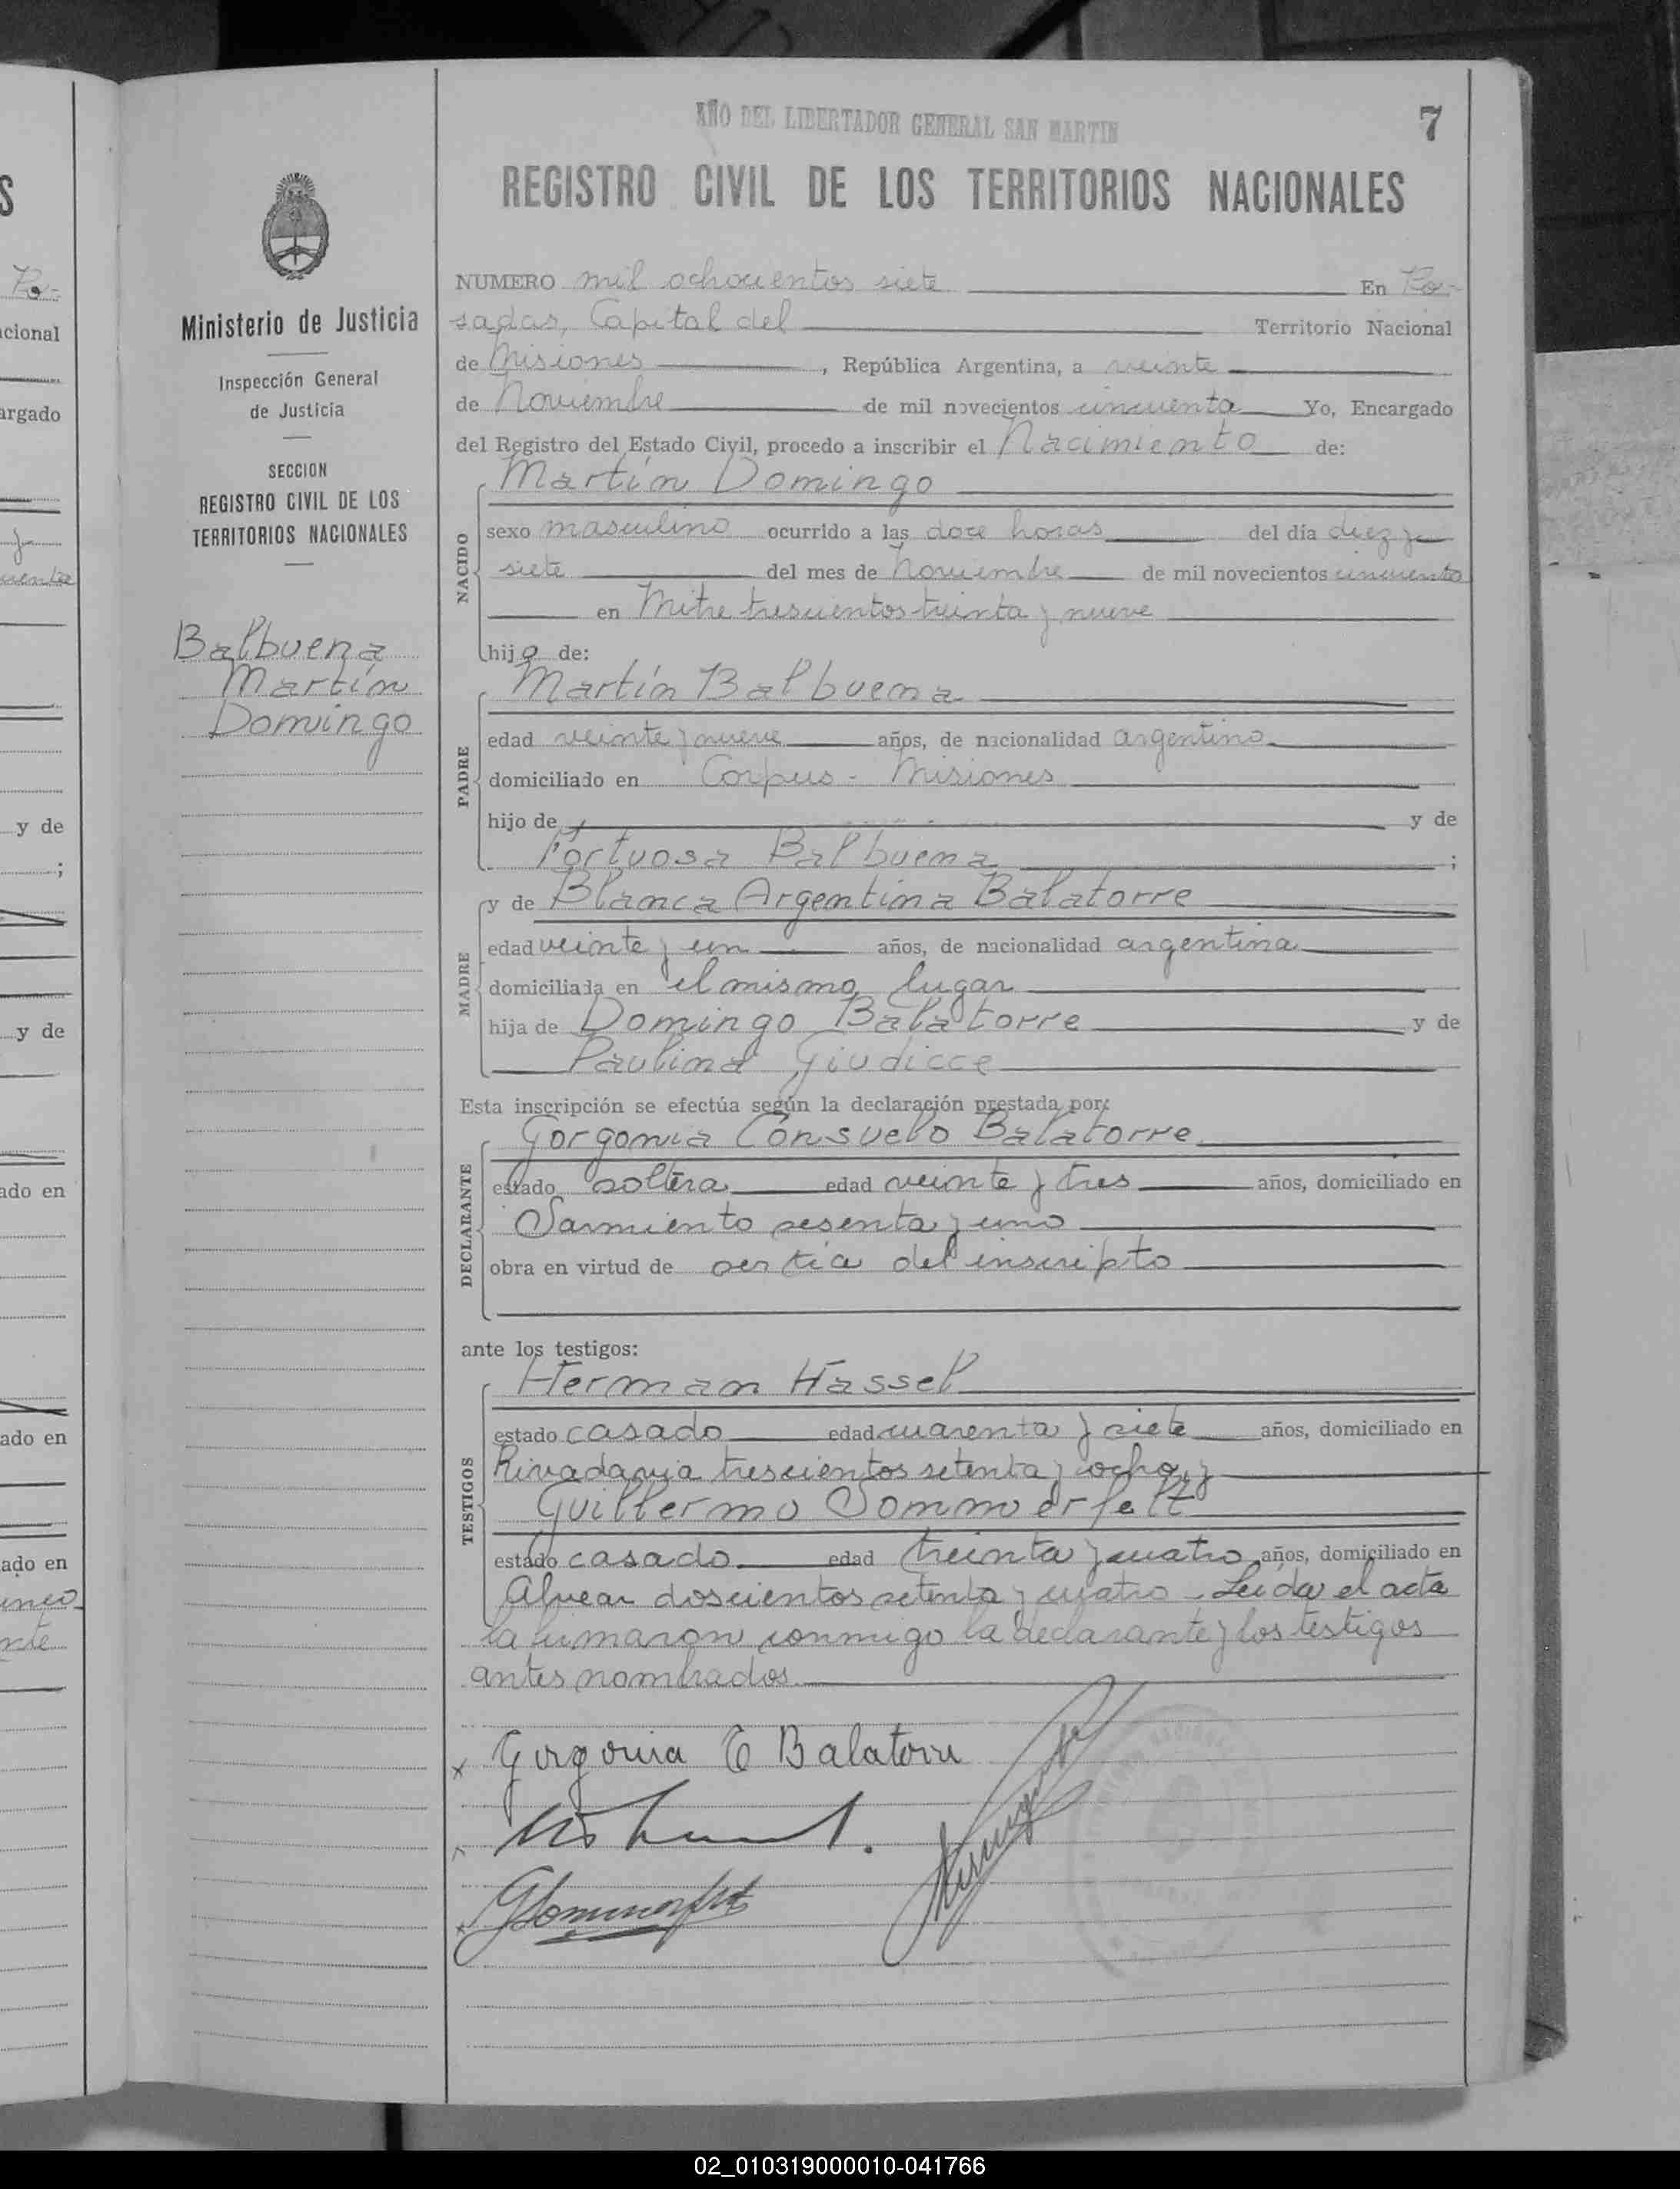 AÑO DEL LIBERTADOR GENERAL SAN MARTIN
7
REGISTRO CIVIL DE LOS TERRITORIOS NACIONALES
Ministerio de Justicia
Inspección General
de Justicia
SECCION
REGISTRO CIVIL DE LOS
TERRITORIOS NACIONALES
Balbuena
Martín
Domingo
NUMERO mil ochocientos siete En Po-
sadas, Capital del Territorio Nacional
de Misiones, República Argentina, a veinte
de Noviembre de mil novecientos cincuenta Yo, Encargado
del Registro del Estado Civil, procedo a inscribir el Nacimiento de:
NACIDO
Martín Domingo
sexo masculino ocurrido a las doce horas del día diez y
siete del mes de Noviembre de mil novecientos cincuenta
en Mitre trescientos treinta y nueve
hijo de:
PADRE
Martín Balbuena
edad veinte y nueve años, de nacionalidad argentino
domiciliado en Corpus - Misiones
hijo de y de
Portuosa Balbuena ;
MADRE
y de Blanca Argentina Balatorre
edad veinte y un años, de nacionalidad argentina
domiciliada en el mismo lugar
hija de Domingo Balatorre y de
Paulina Giudicce
Esta inscripción se efectúa según la declaración prestada por:
DECLARANTE
Gorgonia Consuelo Balatorre
estado soltera edad veinte y tres años, domiciliado en
Sarmiento sesenta y uno
obra en virtud de ser tía del inscripto
ante los testigos:
TESTIGOS
Herman Hassel
estado casado edad cuarenta y siete años, domiciliado en
Rivadavia trescientos setenta y ocho, y
Guillermo Sommerfelt
estado casado edad treinta y cuatro años, domiciliado en
Alvear doscientos setenta y cuatro - Leída el acta
la firmaron conmigo la declarante y los testigos
antes nombrados.
Gorgonia C Balatorre
GSommerfelt
02_010319000010-041766